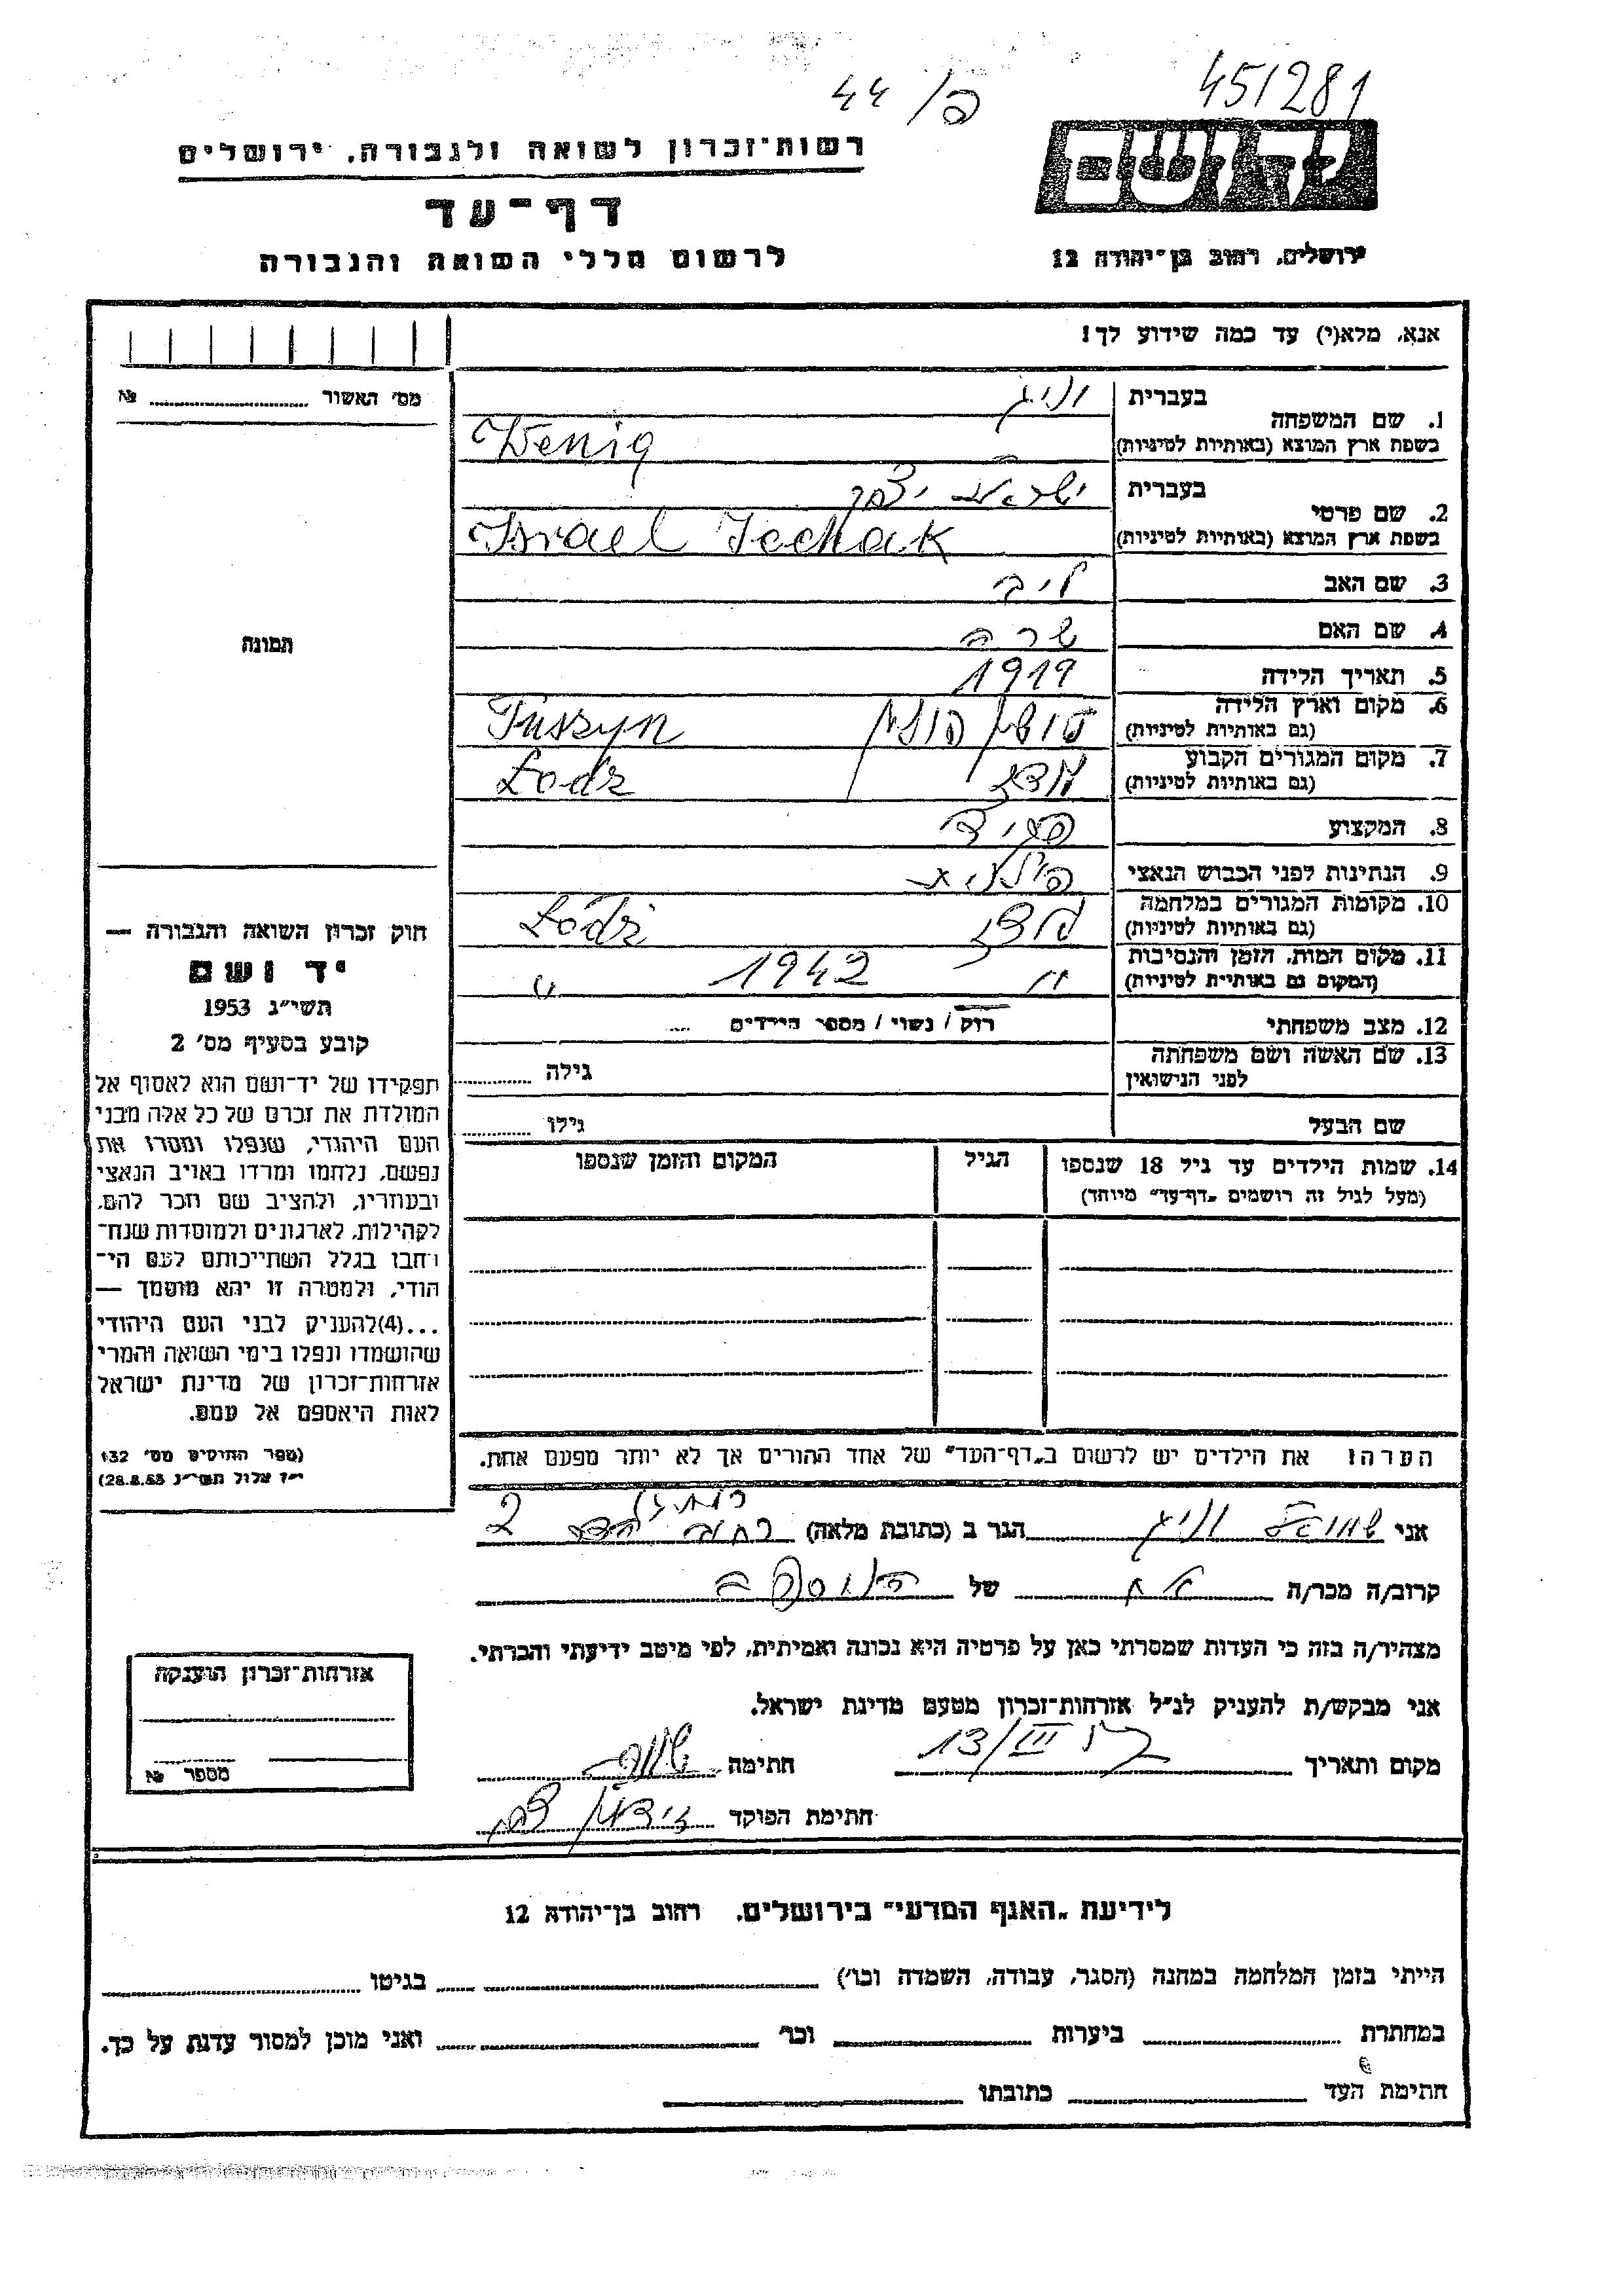 451281
44 /פ
יד ושם
רשות־זכרון לשואה ולגבורה, ירושלים
דף־עד
לרשום חללי השואה והגבורה
ירושלים, רחוב בן־יהודה 12
אנא, מלא(י) עד כמה שידוע לך!
מס׳ האשור №
1. שם המשפחה
בעברית וניג
בשפת ארץ המוצא (באותיות לטיניות) Wenig
2. שם פרטי
בעברית ישראל יצחק
בשפת ארץ המוצא (באותיות לטיניות) Israel Icchak
3. שם האב ליב
4. שם האם שרה
5. תאריך הלידה 1919
6. מקום וארץ הלידה טושין פולין Tuszyn
(גם באותיות לטיניות)
7. מקום המגורים הקבוע לודז Łodz
(גם באותיות לטיניות)
8. המקצוע
9. הנתינות לפני הכבוש הנאצי פולנית
10. מקומות המגורים במלחמה לודז Łódź
(גם באותיות לטיניות)
11. מקום המות, הזמן והנסיבות 1942
(המקום גם באותיות לטיניות)
12. מצב משפחתי רווק / נשוי / מספר הילדים
13. שם האשה ושם משפחתה
לפני הנישואין גילה
שם הבעל גילו
14. שמות הילדים עד גיל 18 שנספו הגיל המקום והזמן שנספו
(מעל לגיל זה רושמים „דף־עד״ מיוחד)
הערה: את הילדים יש לרשום ב„דף־העד״ של אחד ההורים אך לא יותר מפעם אחת.
תמונה
חוק זכרון השואה והגבורה —
יד ושם
תשי״ג 1953
קובע בסעיף מס׳ 2
תפקידו של יד־ושם הוא לאסוף אל
המולדת את זכרם של כל אלה מבני
העם היהודי, שנפלו ומסרו את
נפשם, נלחמו ומרדו באויב הנאצי
ובעוזריו, ולהציב שם וזכר להם,
לקהילות, לארגונים ולמוסדות שנח־
רבו בגלל השתייכותם לעם הי־
הודי, ולמטרה זו יהא מוסמך —
...(4)להעניק לבני העם היהודי
שהושמדו ונפלו בימי השואה והמרי
אזרחות־זכרון של מדינת ישראל
לאות היאספם אל עמם.
(ספר החוקים מס׳ 132
י״ז אלול תשי״ג 28.8.53)
אני שמואל וניג הגר ב (כתובת מלאה) רחוב 2
קרוב/ה מכר/ה אח של הנספה
מצהיר/ה בזה כי העדות שמסרתי כאן על פרטיה היא נכונה ואמיתית, לפי מיטב ידיעתי והכרתי.
אני מבקש/ת להעניק לנ״ל אזרחות־זכרון מטעם מדינת ישראל.
מקום ותאריך 13/III חתימה
חתימת הפוקד
אזרחות־זכרון הוענקה
מספר №
לידיעת „האגף המדעי״ בירושלים, רחוב בן־יהודה 12
הייתי בזמן המלחמה במחנה (הסגר, עבודה, השמדה וכו׳) בגיטו
במחתרת ביערות וכו׳ ואני מוכן למסור עדות על כך.
חתימת העד כתובתו